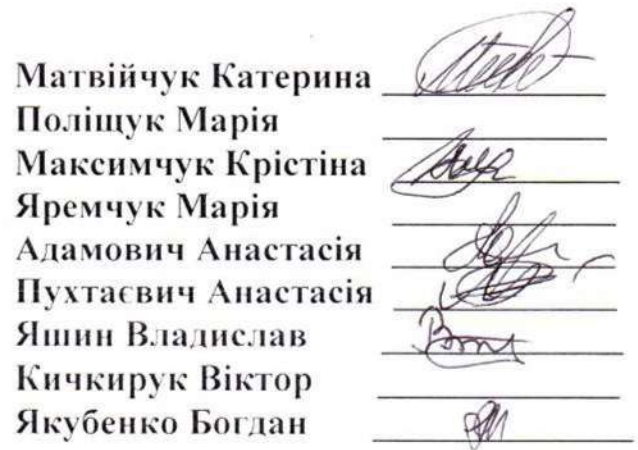 Матвійчук Катерина
Поліщук Марія
Максимчук Крістіна
Яремчук Марія
Адамович Анастасія
Пухтаєвич Анастасія
Яшин Владислав
Кичкирук Віктор
Якубенко Богдан